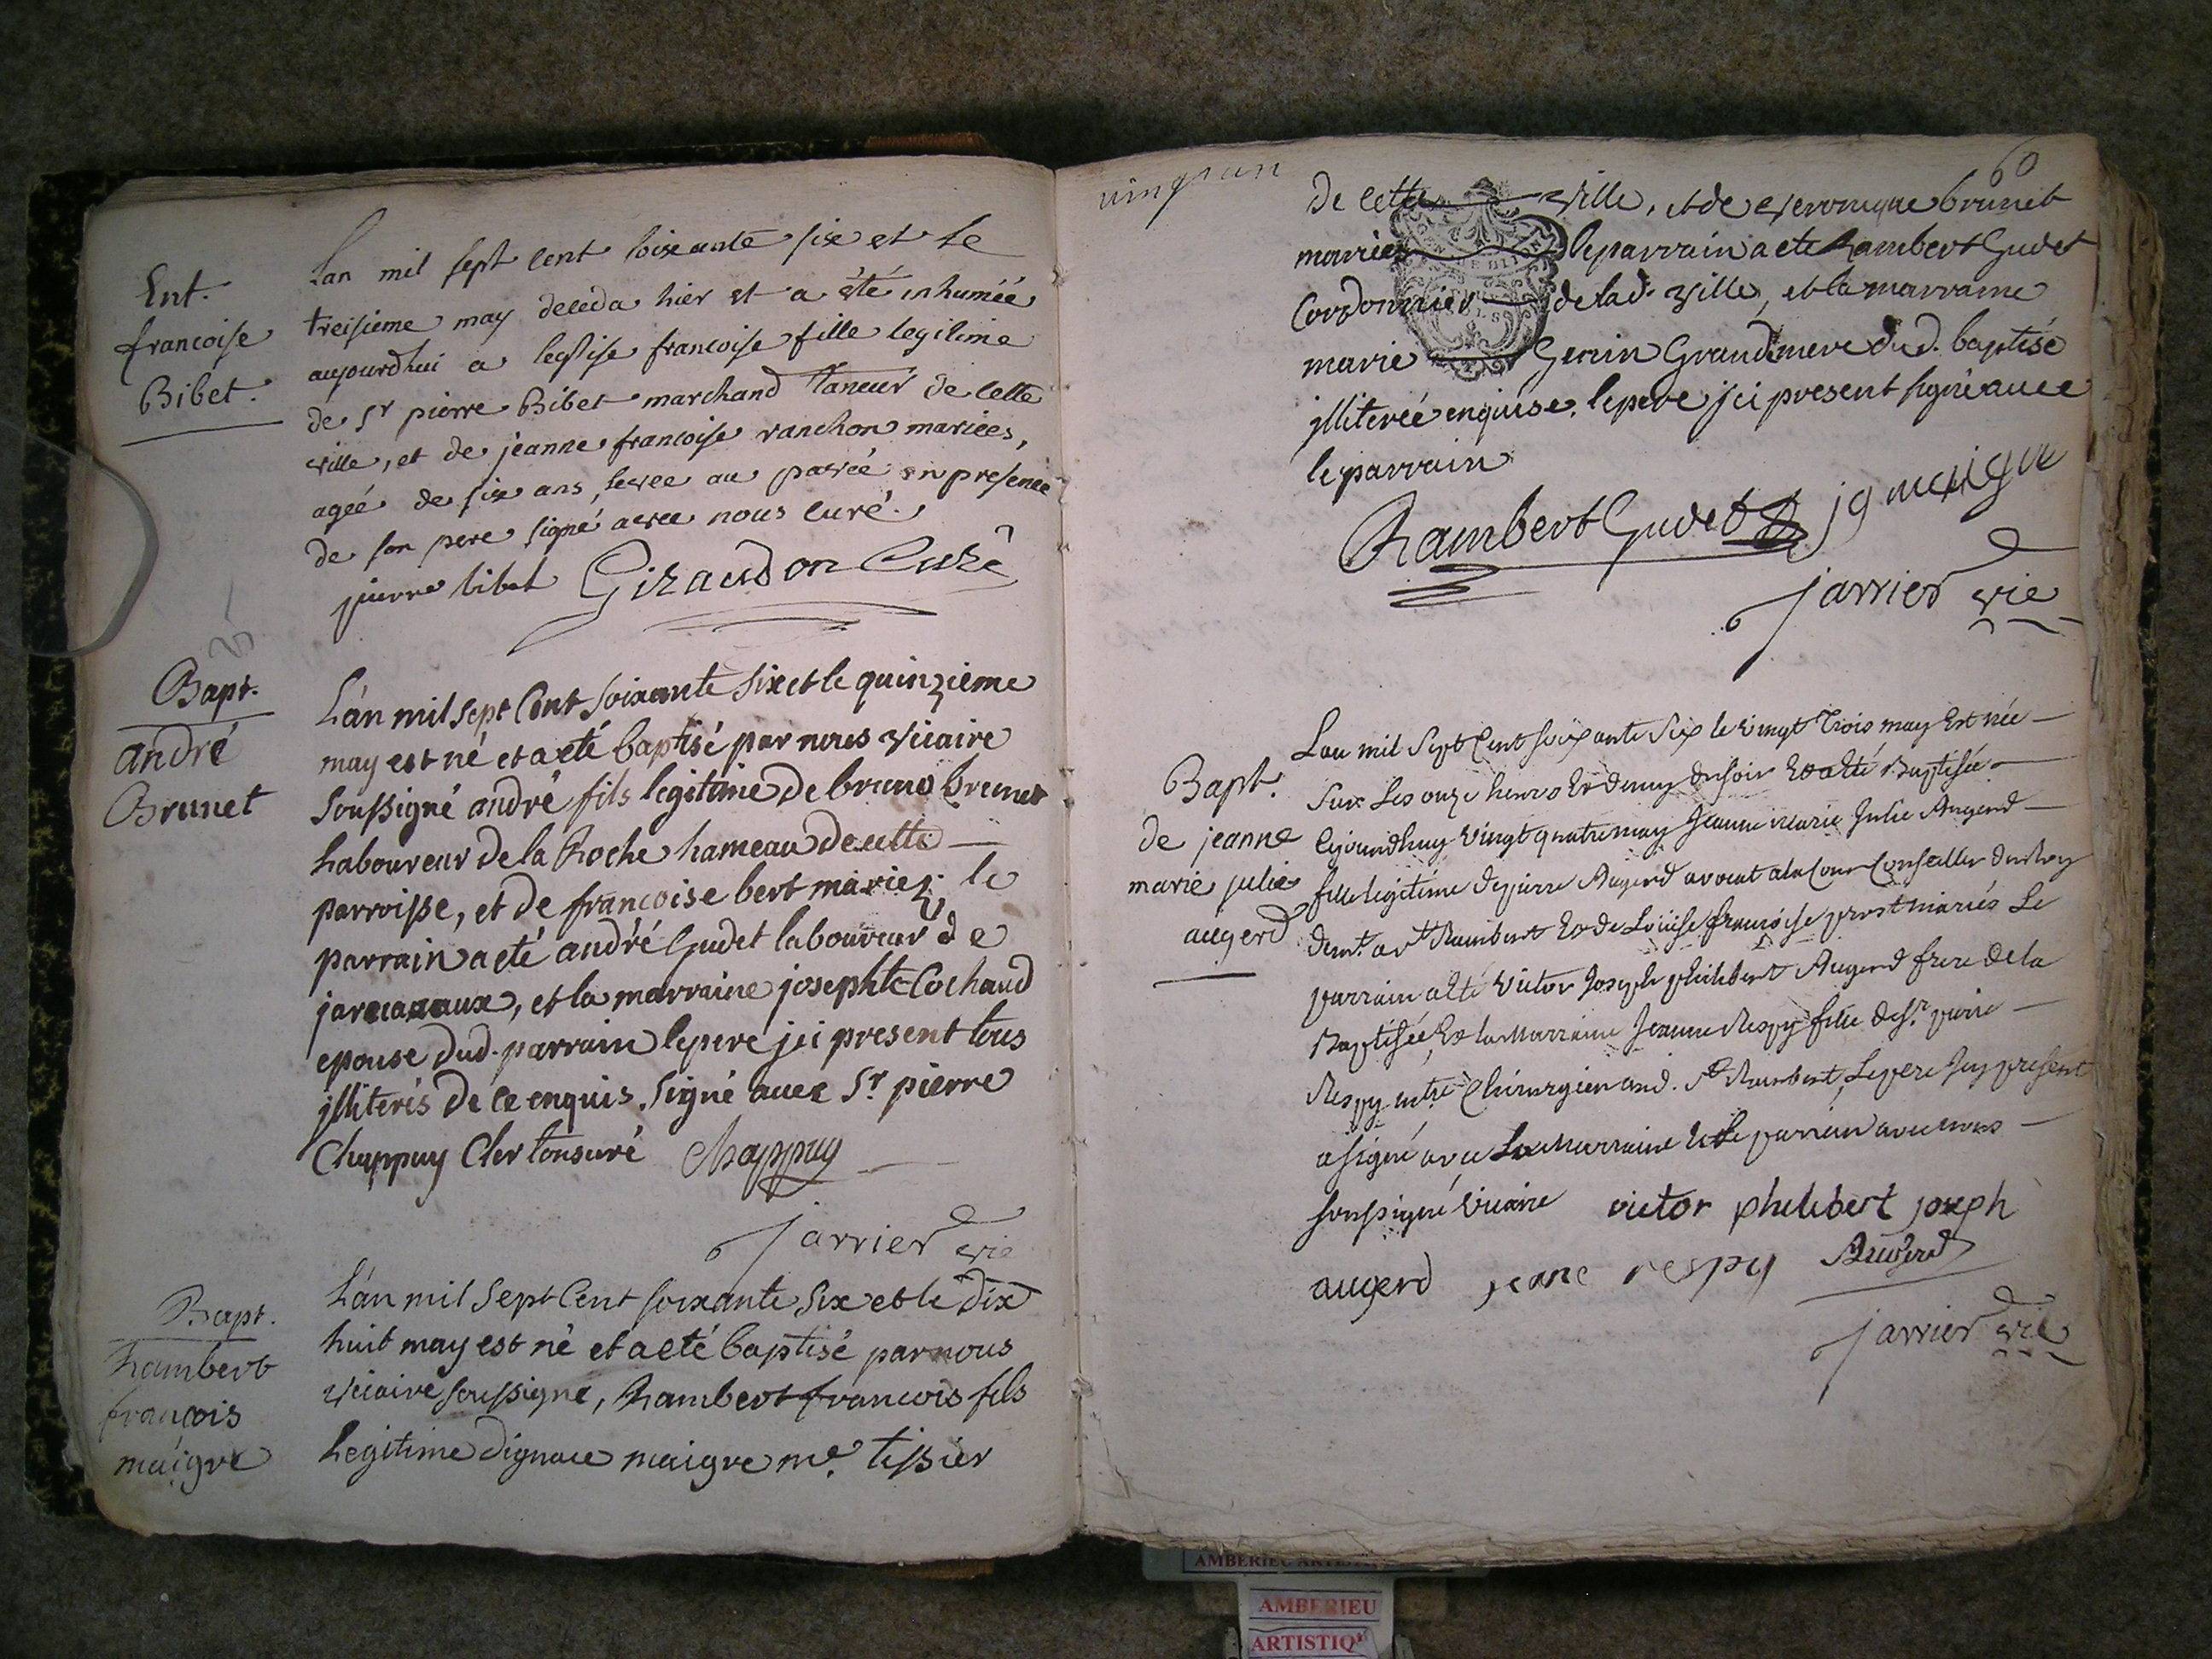 Ent.
francoise
Bibet.
Lan mil sept cent soixante six et le
treisieme may deceda hier et a été inhumée
aujourdhui a leglise francoise fille legitime
de sr pierre Bibet marchand Taneur de cette
ville, et de jeanne francoise ranchon mariees,
agéé de six ans, levee au pavéé en presence
de son pere signé avec nous curé.
pierre bibet Giraudon Curé
Bapt.
andré
Brunet
L'an mil sept Cent soixante six et le quinzieme
may est né et a eté baptisé par nous vicaire
soussigné andré fils legitime de bruno brunet
Laboureur de la Roche hameau de cette
parroisse, et de francoise bert mariez. le
parrain a eté andré Gudet laboureur de
et la marraine josephte Cochand
epouse dud. parrain le pere jci present tous
jlliterés de ce enquis. signé avec Sr. pierre
Chappuy Cler tonsuré Chappuy
jarrier vie
Bapt.
Rambert
francois
maigre
L'an mil sept Cent soixante six et le dix
huit may est né et a eté baptisé par nous
vicaire soussigne, Rambert francois fils
Legitime dignace maigre me. tissier
vingt un
60
de cette ville, et de veronique brunet
mariez le parrain a ete Rambert Gudet
Cordonnier de lad. ville, et la marraine
marie Genin Grandmere dud. baptisé
jlliterée enquise. le pere jci present signé avec
le parrain
Rambert Gudet jg maigre
jarrier vie
Bapt.
de jeanne
marie julie
augerd
Lan mil Sept Cent soixante Six le vingt Trois may Est née
sur Les onze heures Et demy du soir Et a été Baptisée
cejourdhuy vingt quatre may Jeanne Marie Julie Augerd
fille legitime de pierre Augerd avocat a la Cour Conseiller du Roy
a St Rambert Et de Loüise françoise mariés Le
parrain a Eté victor Joseph philibert Augerd frere de la
Baptisée, Et la Marraine Jeanne Respy fille de sr. pierre
Respy mtre Chirurgien aud. St Rambert, Le pere Jcy present
a signé avec La Marraine Et Le parrain avec nous
soussigné vicaire victor philebert joseph
augerd jeane respy Augerd
jarrier vie
AMBERIEU
AMBERIEU
ARTISTIQ